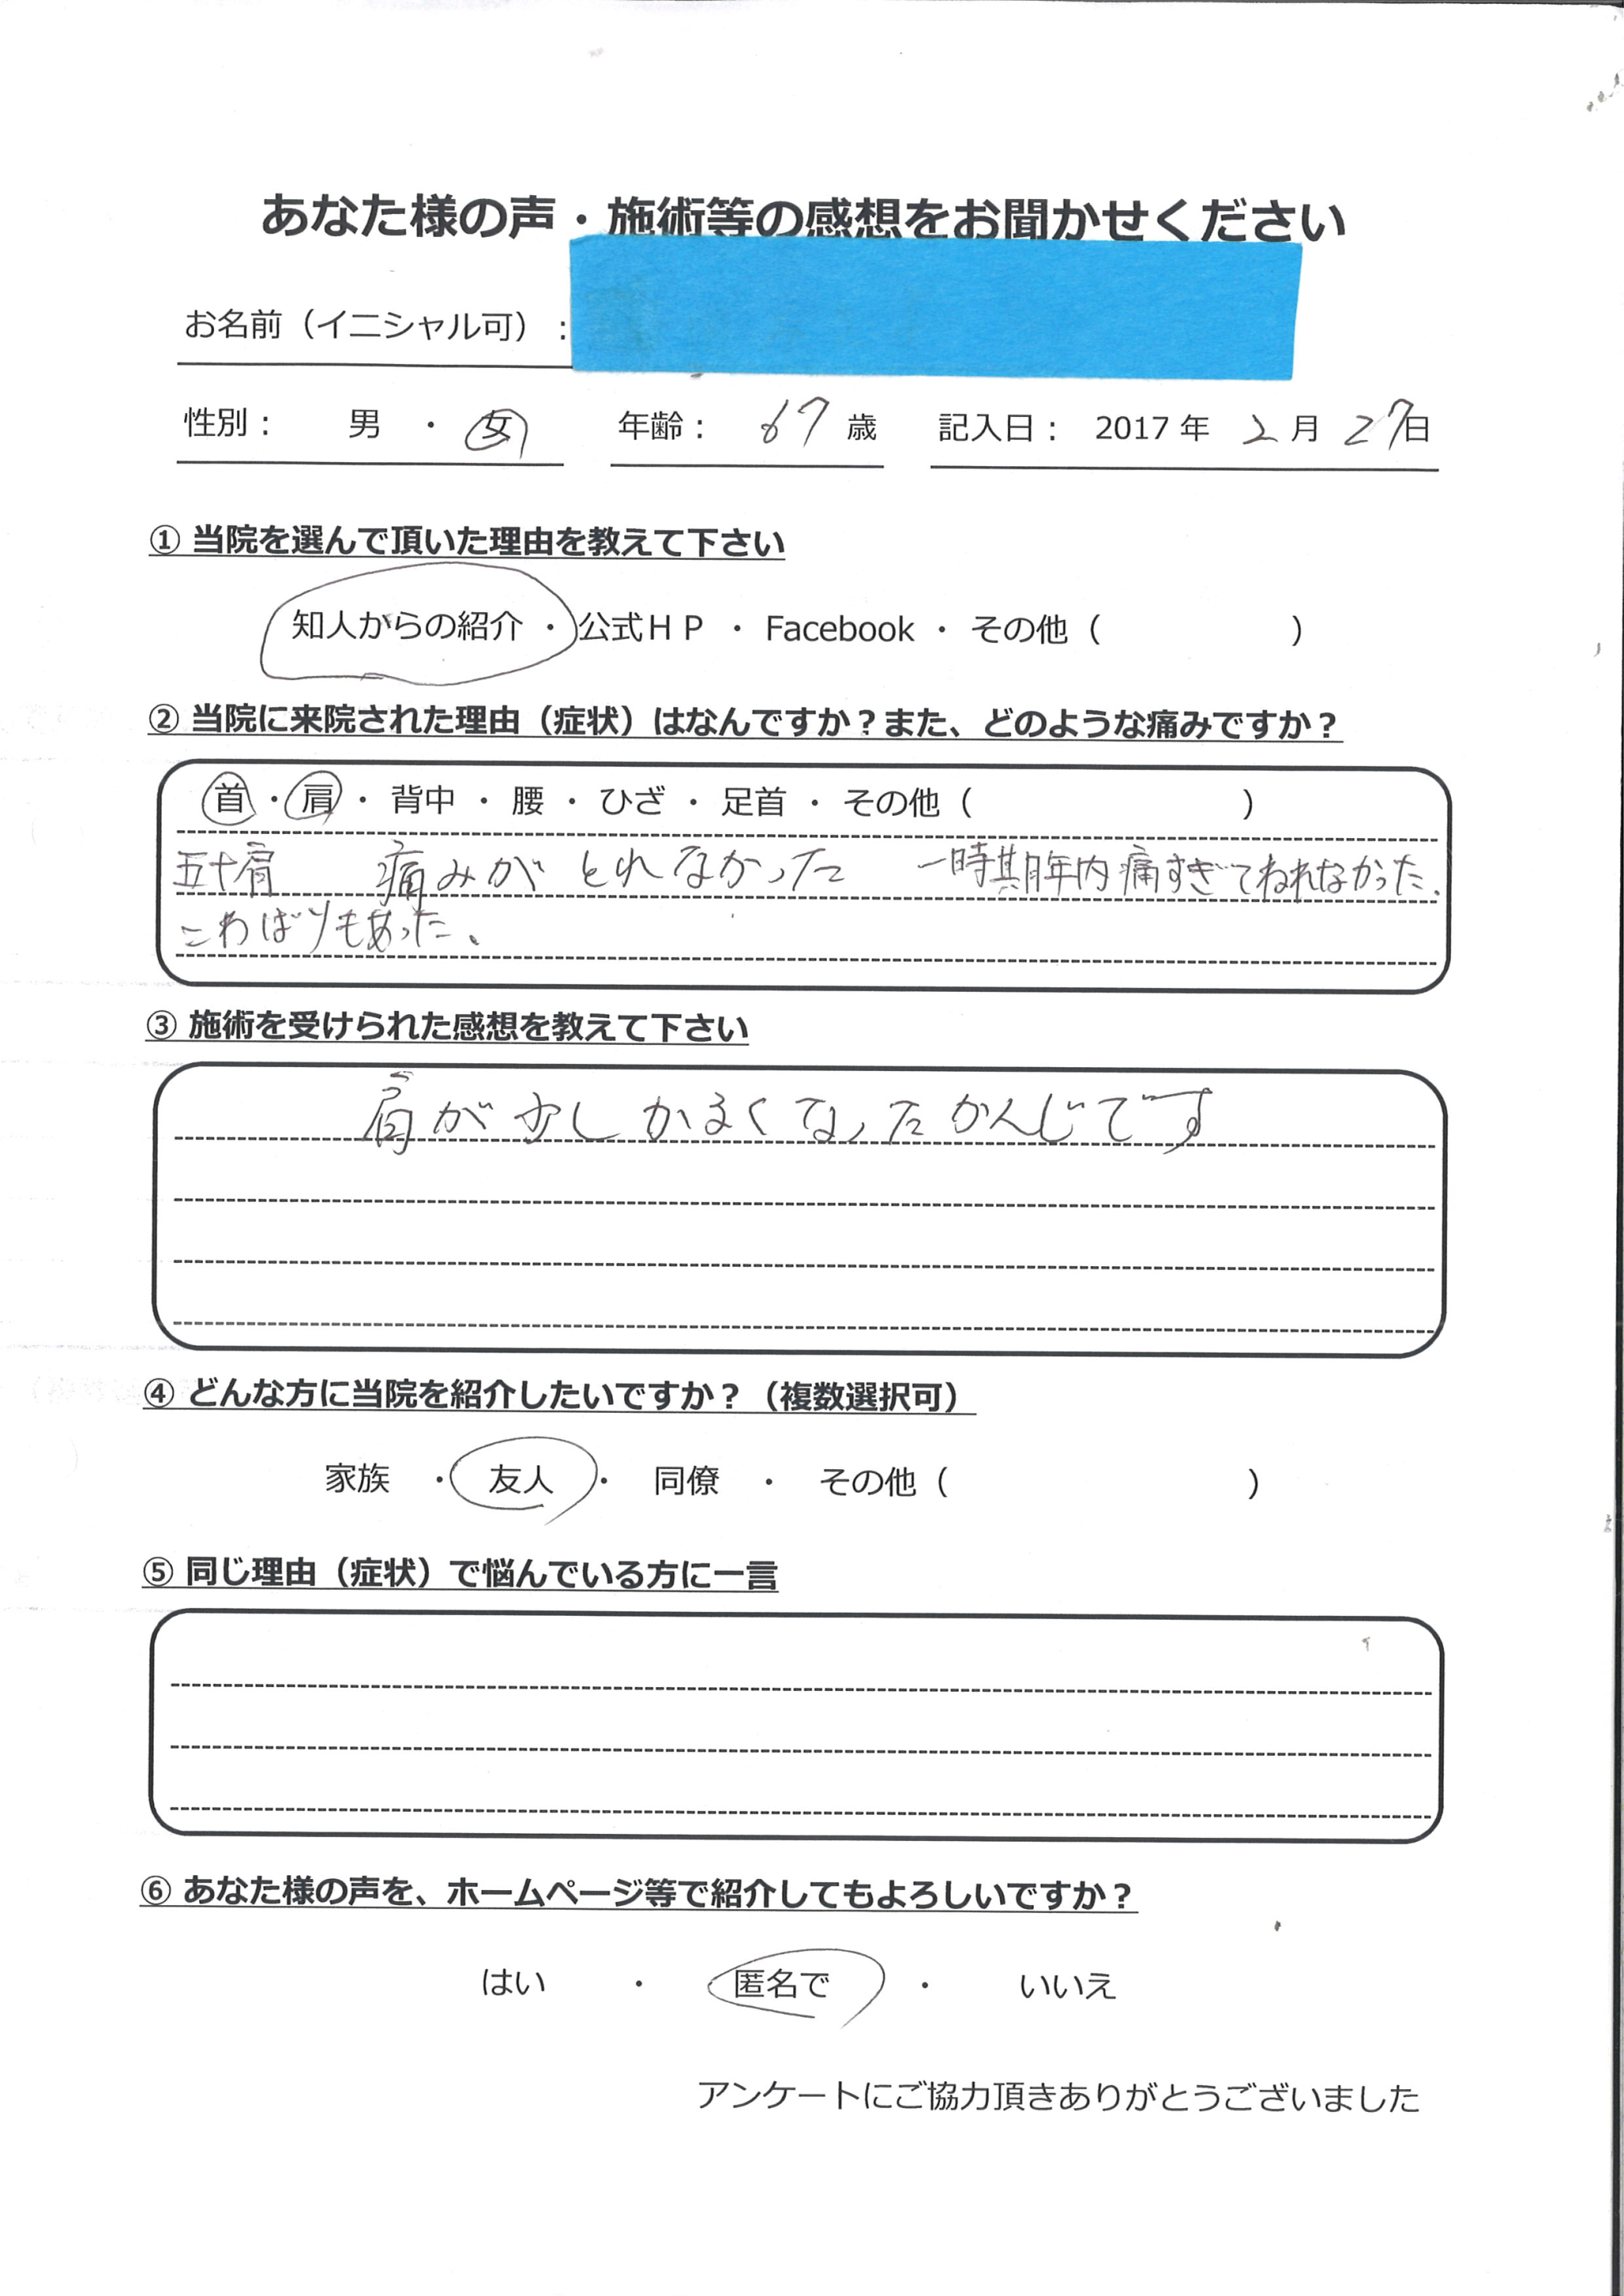 あなた様の声・施術等の感想をお聞かせください
お名前（イニシャル可）：
性別： 男 ・ 女 年齢： 67 歳 記入日： 2017 年 2 月 27 日
① 当院を選んで頂いた理由を教えて下さい
知人からの紹介 ・ 公式ＨＰ ・ Facebook ・ その他（ ）
② 当院に来院された理由（症状）はなんですか？また、どのような痛みですか？
首 ・ 肩 ・ 背中 ・ 腰 ・ ひざ ・ 足首 ・ その他（ ）
五十肩 痛みが とれなかった 一時期年内痛すぎてねれなかった、
こわばりもあった、
③ 施術を受けられた感想を教えて下さい
肩が少しかるくなったかんじです
④ どんな方に当院を紹介したいですか？（複数選択可）
家族 ・ 友人 ・ 同僚 ・ その他（ ）
⑤ 同じ理由（症状）で悩んでいる方に一言
⑥ あなた様の声を、ホームページ等で紹介してもよろしいですか？
はい ・ 匿名で ・ いいえ
アンケートにご協力頂きありがとうございました